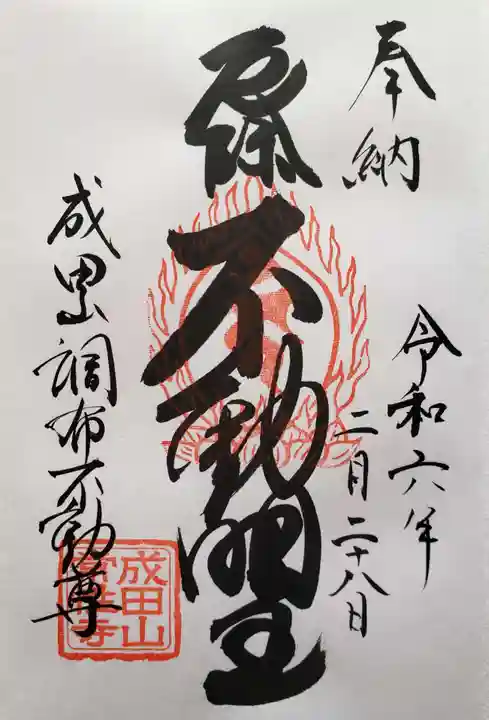 奉納
令和六年
二月二十八日
厄除不動明王
成田山調布不動尊
成田山
常性寺